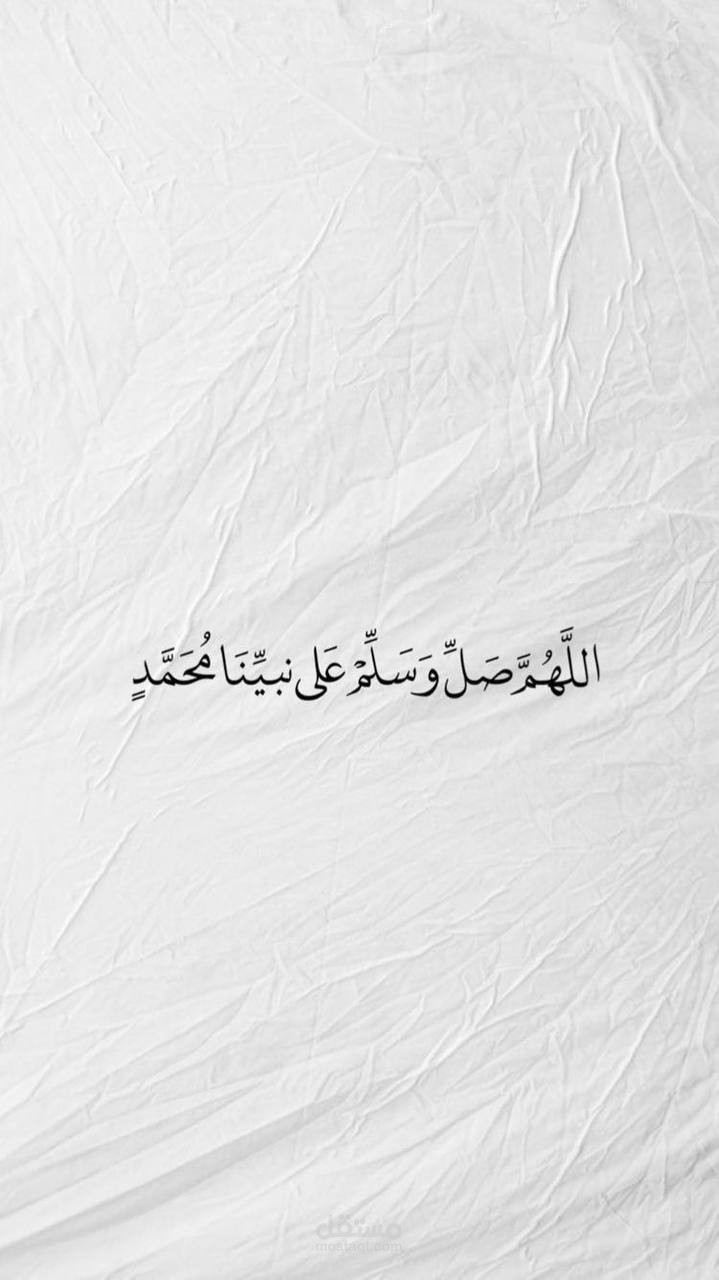 اللَّهُمَّ صَلِّ وَسَلِّمْ عَلى نبيِّنَا مُحَمَّدٍ
مستقل
mostaql.com